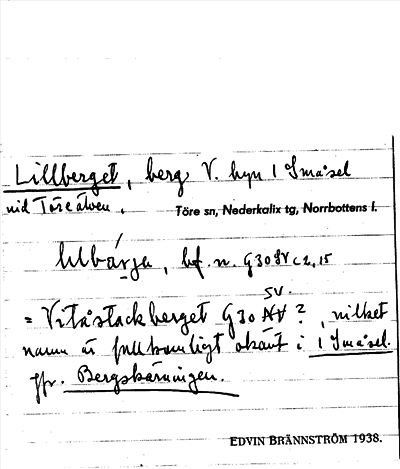 Lillberget, berg V. byn 1 Småsel
vid Töreälven. Töre sn, Nederkalix tg, Norrbottens l.
bf. n. G30 SV c 2, 15
SV.
= Vitåstackberget G30 NV ? , vilket
namn är fullkomligt okänt i 1 Småsel.
Jfr. Bergskärningen.
EDVIN BRÄNNSTRÖM 1938.